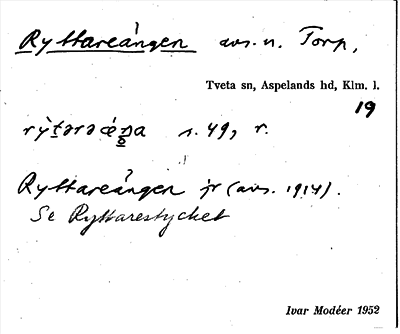 Ryttareängen avs. n. Torp,
Tveta sn, Aspelands hd, Klm. l.
19
s. 49, r.
Ryttareängen jr (avs. 1914).
Se Ryttarestycket
Ivar Modéer 1952